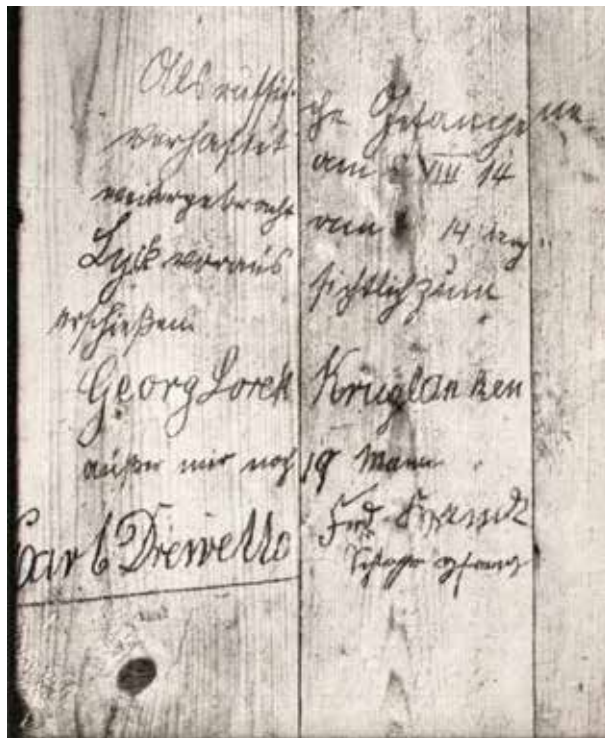 Als russische Gefangene
verhaftet am VIII 14
weitergebracht am 14
Lyck voraussichtlich zum
erschießen
Georg Lorek Kruglanken
außer mir noch 19 Mann
Carl Drewello Ferd.